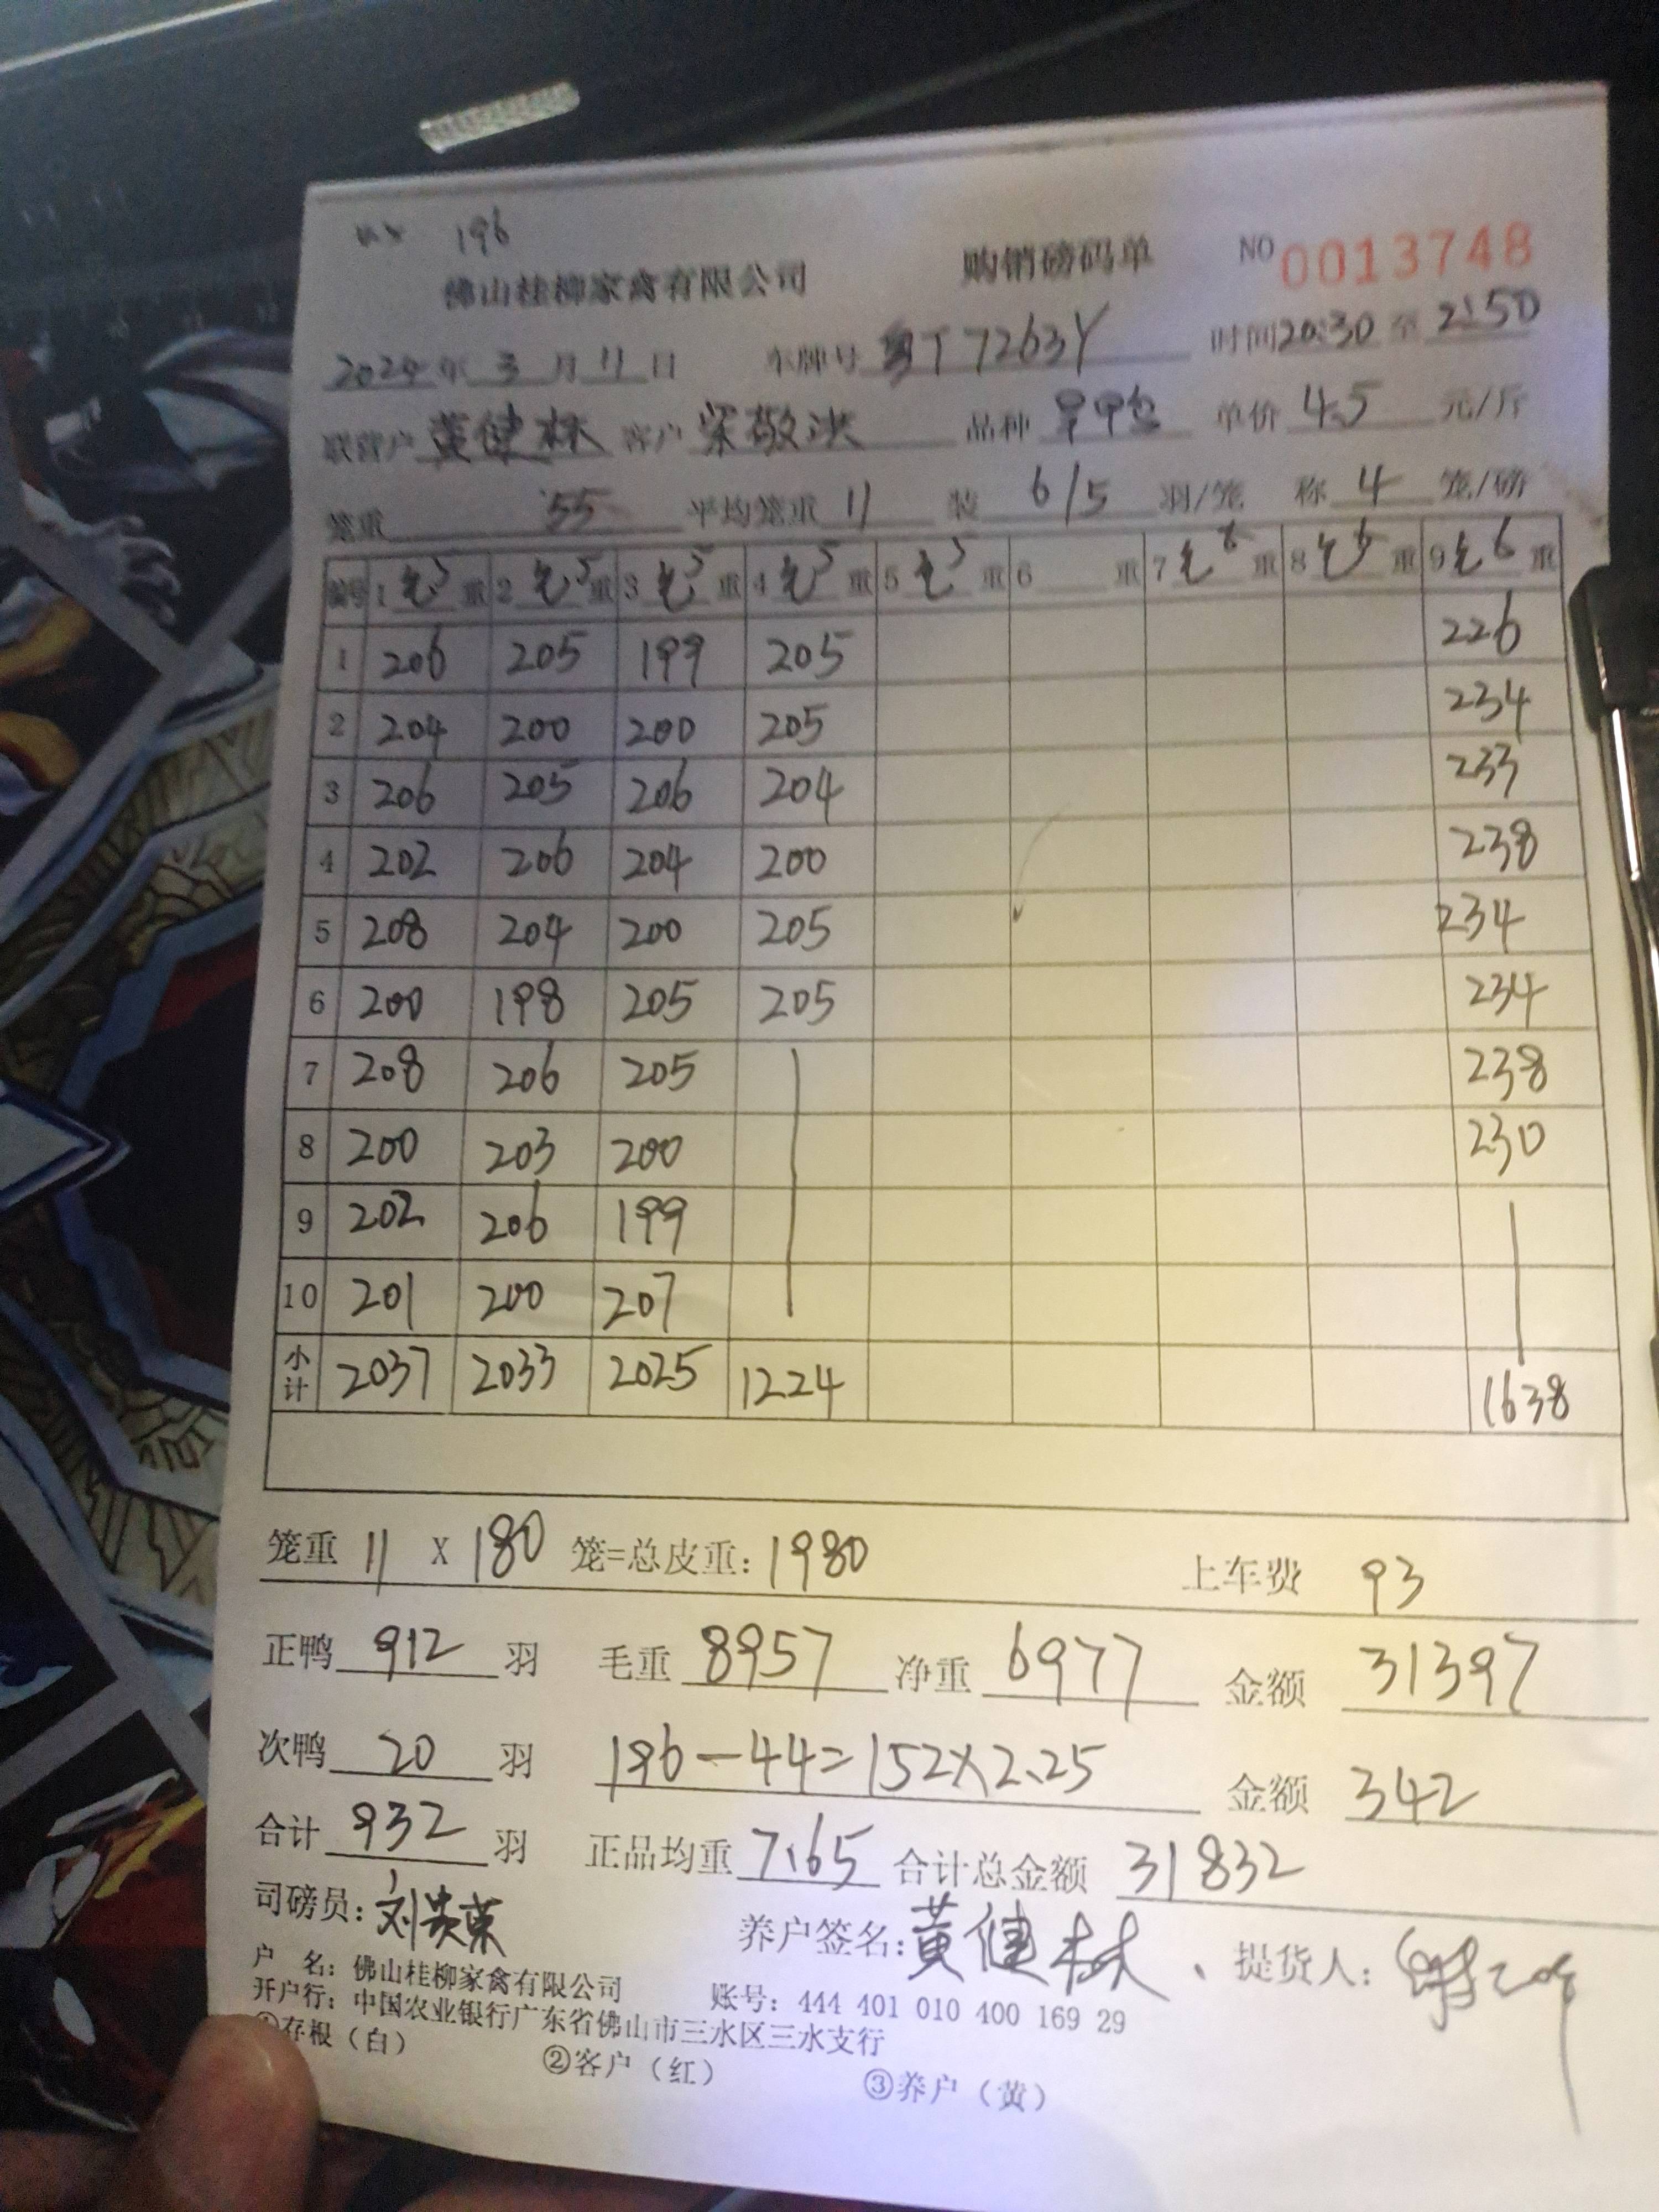 196
佛山桂柳家禽有限公司 购销磅码单 NO 0013748
2024年3月11日 车牌号 粤T7263Y 时间20:30至21:50
联营户 黄健林 客户 梁敬洪 品种 单价 4.5 元/斤
笼重 55 平均笼重 11 装 6/5 羽/笼 称 4 笼/磅
编号 1 毛5 重 2 毛5 重 3 毛5 重 4 毛5 重 5 毛5 重 6 重 7 毛6 重 8 毛6 重 9 毛6 重
1 206 205 199 205 226
2 204 200 200 205 234
3 206 205 206 204 233
4 202 206 204 200 238
5 208 204 200 205 234
6 200 198 205 205 234
7 208 206 205 238
8 200 203 200 230
9 202 206 199
10 201 200 207
小计 2037 2033 2025 1224 1638
笼重 11 X 180 笼=总皮重: 1980 上车费 93
正鸭 912 羽 毛重 8957 净重 6977 金额 31397
次鸭 20 羽 196-44=152×2.25 金额 342
合计 932 羽 正品均重 7.65 合计总金额 31832
司磅员: 养户签名: 黄健林 、提货人:
户 名: 佛山桂柳家禽有限公司 账号: 444 401 010 400 169 29
开户行: 中国农业银行广东省佛山市三水区三水支行
①存根（白） ②客户（红） ③养户（黄）